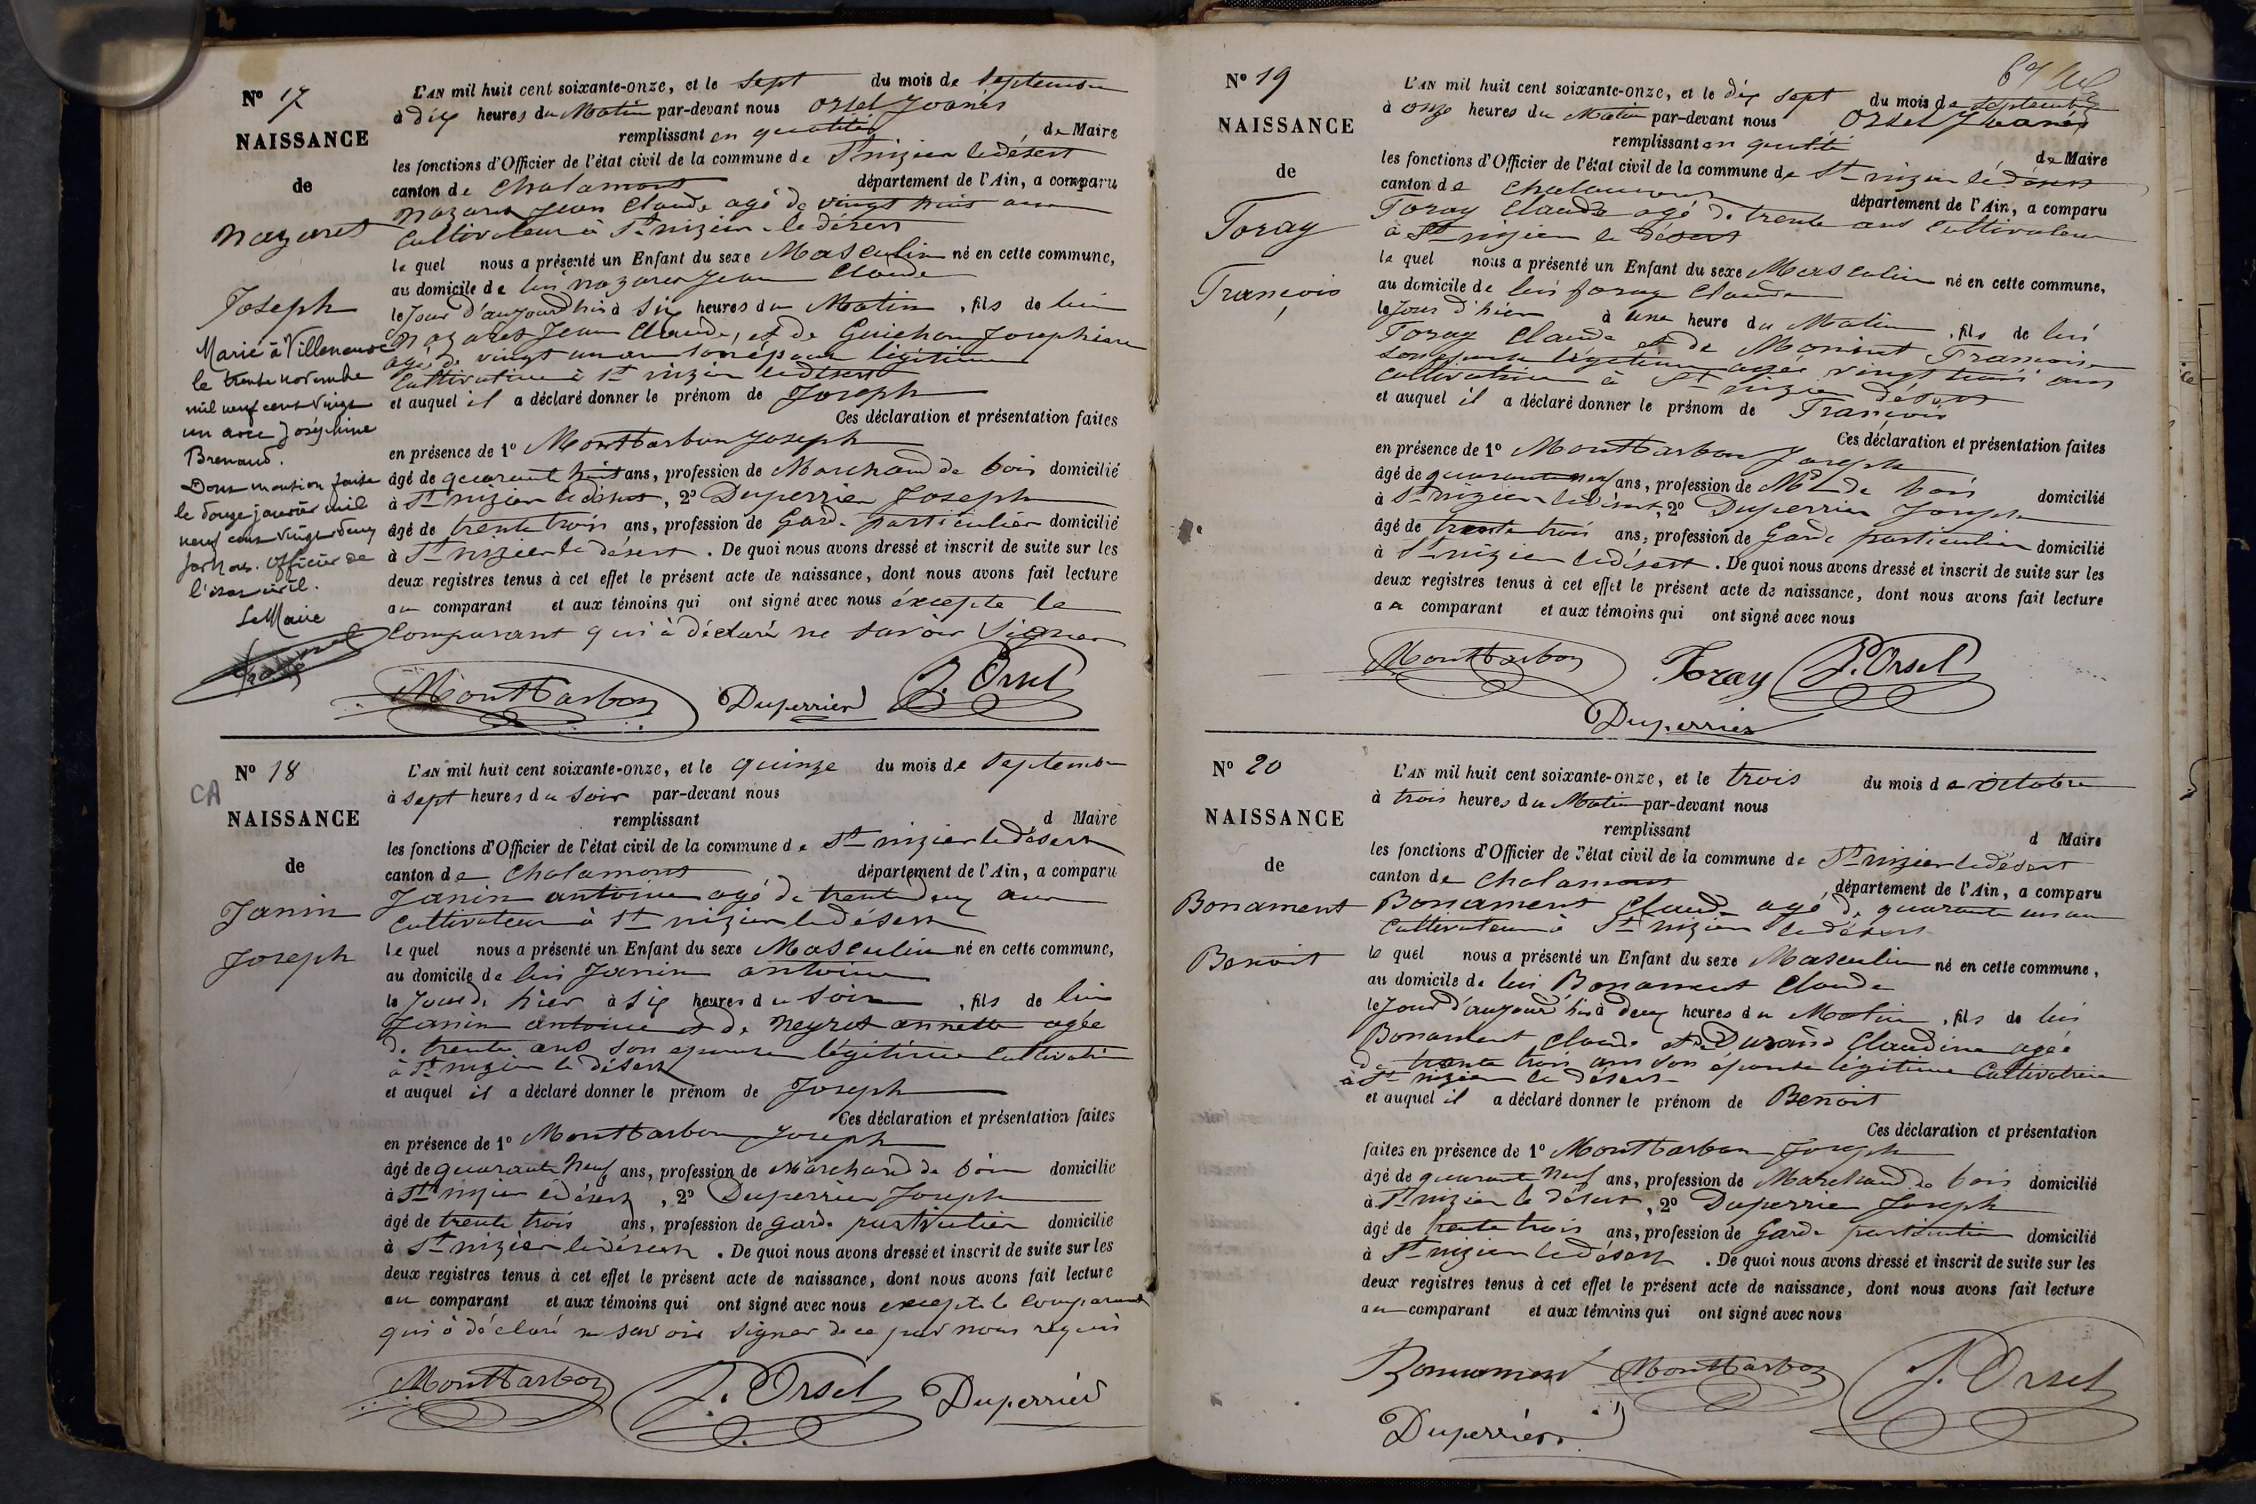 N° 17
NAISSANCE
de
Nazaret
Joseph
Marié à Villeneuve
le trente novembre
mil neuf cent vingt
un avec Joséphine
Brenaud.
Dont mention faite
le douze janvier mil
neuf cent vingt deux
par nous officier de
l'état civil.
Le Maire
L'AN mil huit cent soixante-onze, et le sept du mois de Septembre
à dix heures du Matin par-devant nous Orsel Joanès
remplissant en qualité de Maire
les fonctions d'Officier de l'état civil de la commune de St nizier le désert
canton de Chalamont département de l'Ain, a comparu
Nazaret Jean Claude agé de vingt huit ans
Cultivateur à St nizier le désert
le quel nous a présenté un Enfant du sexe Masculin né en cette commune,
au domicile de lui Nazaret Jean Claude
le Jour d'aujourd'hui à Six heures du Matin, fils de lui
Nazaret Jean Claude, et de Guichon Josephine
agée de vingt un an son épouse légitime
Cultivatrice à St nizier le désert
et auquel il a déclaré donner le prénom de Joseph
Ces déclaration et présentation faites
en présence de 1° Montbarbon Joseph
âgé de quarante huit ans, profession de Marchand de bois domicilié
à St nizier le désert, 2° Duperrier Joseph
âgé de trente trois ans, profession de Garde particulier domicilié
à St nizier le désert. De quoi nous avons dressé et inscrit de suite sur les
deux registres tenus à cet effet le présent acte de naissance, dont nous avons fait lecture
au comparant et aux témoins qui ont signé avec nous excepte le
Comparant qui à déclaré ne savoir Signer
Montbarbon Duperrier J. Orsel
N° 18
CA
NAISSANCE
de
Janin
Joseph
L'AN mil huit cent soixante-onze, et le quinze du mois de Septembre
à sept heures du Soir par-devant nous
remplissant d Maire
les fonctions d'Officier de l'état civil de la commune de St nizier le désert
canton de Chalamont département de l'Ain, a comparu
Janin antoine agé de trente deux ans
Cultivateur à St nizier le désert
le quel nous a présenté un Enfant du sexe Masculin né en cette commune,
au domicile de lui Janin antoine
le Jour de hier à Six heures du Soir, fils de lui
Janin antoine et de Neyret annette agée
de trente ans son epouse légitime Cultivatrice
à St nizier le désert
et auquel il a déclaré donner le prénom de Joseph
Ces déclaration et présentation faites
en présence de 1° Montbarbon Joseph
âgé de quarante neuf ans, profession de Marchand de bois domicilié
à St nizier le désert, 2° Duperrier Joseph
âgé de trente trois ans, profession de garde particulier domicilié
à St nizier le désert. De quoi nous avons dressé et inscrit de suite sur les
deux registres tenus à cet effet le présent acte de naissance, dont nous avons fait lecture
au comparant et aux témoins qui ont signé avec nous excepte le Comparant
qui à déclaré ne savoir Signer de ce par nous requis
Montbarbon J. Orsel Duperrier
N° 19
NAISSANCE
de
Foray
François
L'AN mil huit cent soixante-onze, et le dix sept du mois de Septembre
à onze heures du Matin par-devant nous Orsel Joanès
remplissant en qualité de Maire
les fonctions d'Officier de l'état civil de la commune de St nizier le désert
canton de Chalamont département de l'Ain, a comparu
Foray Claude agé de trente ans Cultivateur
à St nizier le désert
le quel nous a présenté un Enfant du sexe Masculin né en cette commune,
au domicile de lui foray Claude
le Jour d'hier à une heure du Matin, fils de lui
Foray Claude et de Françoise
son epouse légitime agée vingt trois ans
cultivatrice à St nizier le désert
et auquel il a déclaré donner le prénom de François
Ces déclaration et présentation faites
en présence de 1° Montbarbon Joseph
âgé de quarante neuf ans, profession de Md de bois domicilié
à St nizier le désert, 2° Duperrier Joseph
âgé de trente trois ans, profession de Garde particulier domicilié
à St nizier le désert. De quoi nous avons dressé et inscrit de suite sur les
deux registres tenus à cet effet le présent acte de naissance, dont nous avons fait lecture
au comparant et aux témoins qui ont signé avec nous
Montbarbon Foray J. Orsel
Duperrier
N° 20
NAISSANCE
de
Bonament
Benoit
L'AN mil huit cent soixante-onze, et le trois du mois de octobre
à trois heures du Matin par-devant nous
remplissant d Maire
les fonctions d'Officier de l'état civil de la commune de St nizier le désert
canton de Chalamont département de l'Ain, a comparu
Bonament Claude agé de quarante un an
Cultivateur à St nizier le désert
le quel nous a présenté un Enfant du sexe Masculin né en cette commune,
au domicile de lui Bonament Claude
le Jour d'aujourd'hui à deux heures du Matin, fils de lui
Bonament Claude et de Durand Claudine agée
de trente trois ans son épouse légitime Cultivatrice
à St nizier le désert
et auquel il a déclaré donner le prénom de Benoit
Ces déclaration et présentation
faites en présence de 1° Montbarbon Joseph
âgé de quarante neuf ans, profession de Marchand de bois domicilié
à St nizier le désert, 2° Duperrier Joseph
âgé de trente trois ans, profession de Garde particulier domicilié
à St nizier le désert. De quoi nous avons dressé et inscrit de suite sur les
deux registres tenus à cet effet le présent acte de naissance, dont nous avons fait lecture
au comparant et aux témoins qui ont signé avec nous
Bonnament Montbarbon J. Orsel
Duperrier